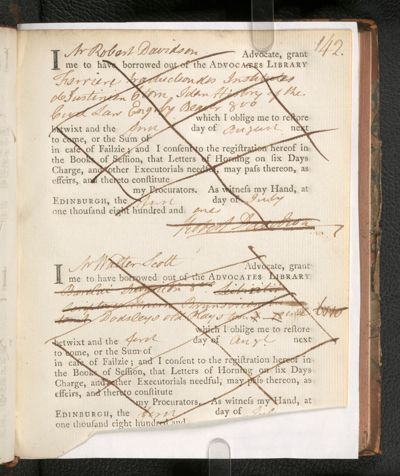 142.
I Mr Robert Davidson Advocate, grant
me to have borrowed out of the ADVOCATES LIBRARY
Ferriere Institutes
de Justinien 6 tom. Idem History of the
Civil Law Eng. by Beaver 8vo
which I oblige me to restore
betwixt and the first day of August next
to come, or the Sum of
in case of Failzie; and I consent to the registration hereof in
the Books of Session, that Letters of Horning on six Days
Charge, and other Executorials needful, may pass thereon, as
effeirs, and thereto constitute
my Procurators. As witness my Hand, at
EDINBURGH, the first day of July
one thousand eight hundred and one
Robert Davidson
I Mr Walter Scott Advocate, grant
me to have borrowed out of the ADVOCATES LIBRARY
Dodsleys old Plays
which I oblige me to restore
betwixt and the first day of Augt next
to come, or the Sum of
in case of Failzie; and I consent to the registration hereof in
the Books of Session, that Letters of Horning on six Days
Charge, and other Executorials needful, may pass thereon, as
effeirs, and thereto constitute
my Procurators. As witness my Hand, at
EDINBURGH, the first day of
one thousand eight hundred and